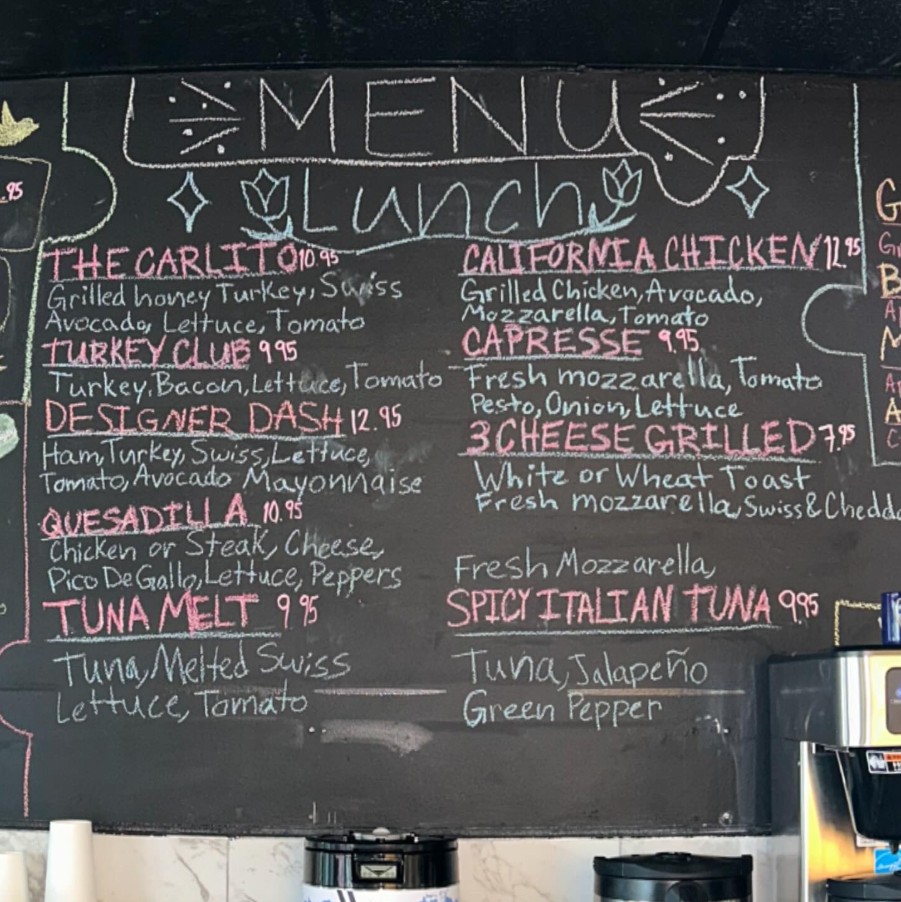 MENU
Lunch
THE CARLITO 10.95
Grilled honey Turkey, Swiss
Avocado, Lettuce, Tomato
TURKEY CLUB 9.95
Turkey, Bacon, Lettuce, Tomato
DESIGNER DASH 12.95
Ham, Turkey, Swiss, Lettuce,
Tomato, Avocado Mayonnaise
QUESADILLA 10.95
Chicken or Steak, Cheese,
Pico De Gallo, Lettuce, Peppers
TUNA MELT 9.95
Tuna, Melted Swiss
Lettuce, Tomato
CALIFORNIA CHICKEN 12.95
Grilled Chicken, Avocado,
Mozzarella, Tomato
CAPRESSE 9.95
Fresh mozzarella, Tomato
Pesto, Onion, Lettuce
3 CHEESE GRILLED 7.95
White or Wheat Toast
Fresh mozzarella, Swiss & Chedda
Fresh Mozzarella,
SPICY ITALIAN TUNA 9.95
Tuna, Jalapeño
Green Pepper
.95